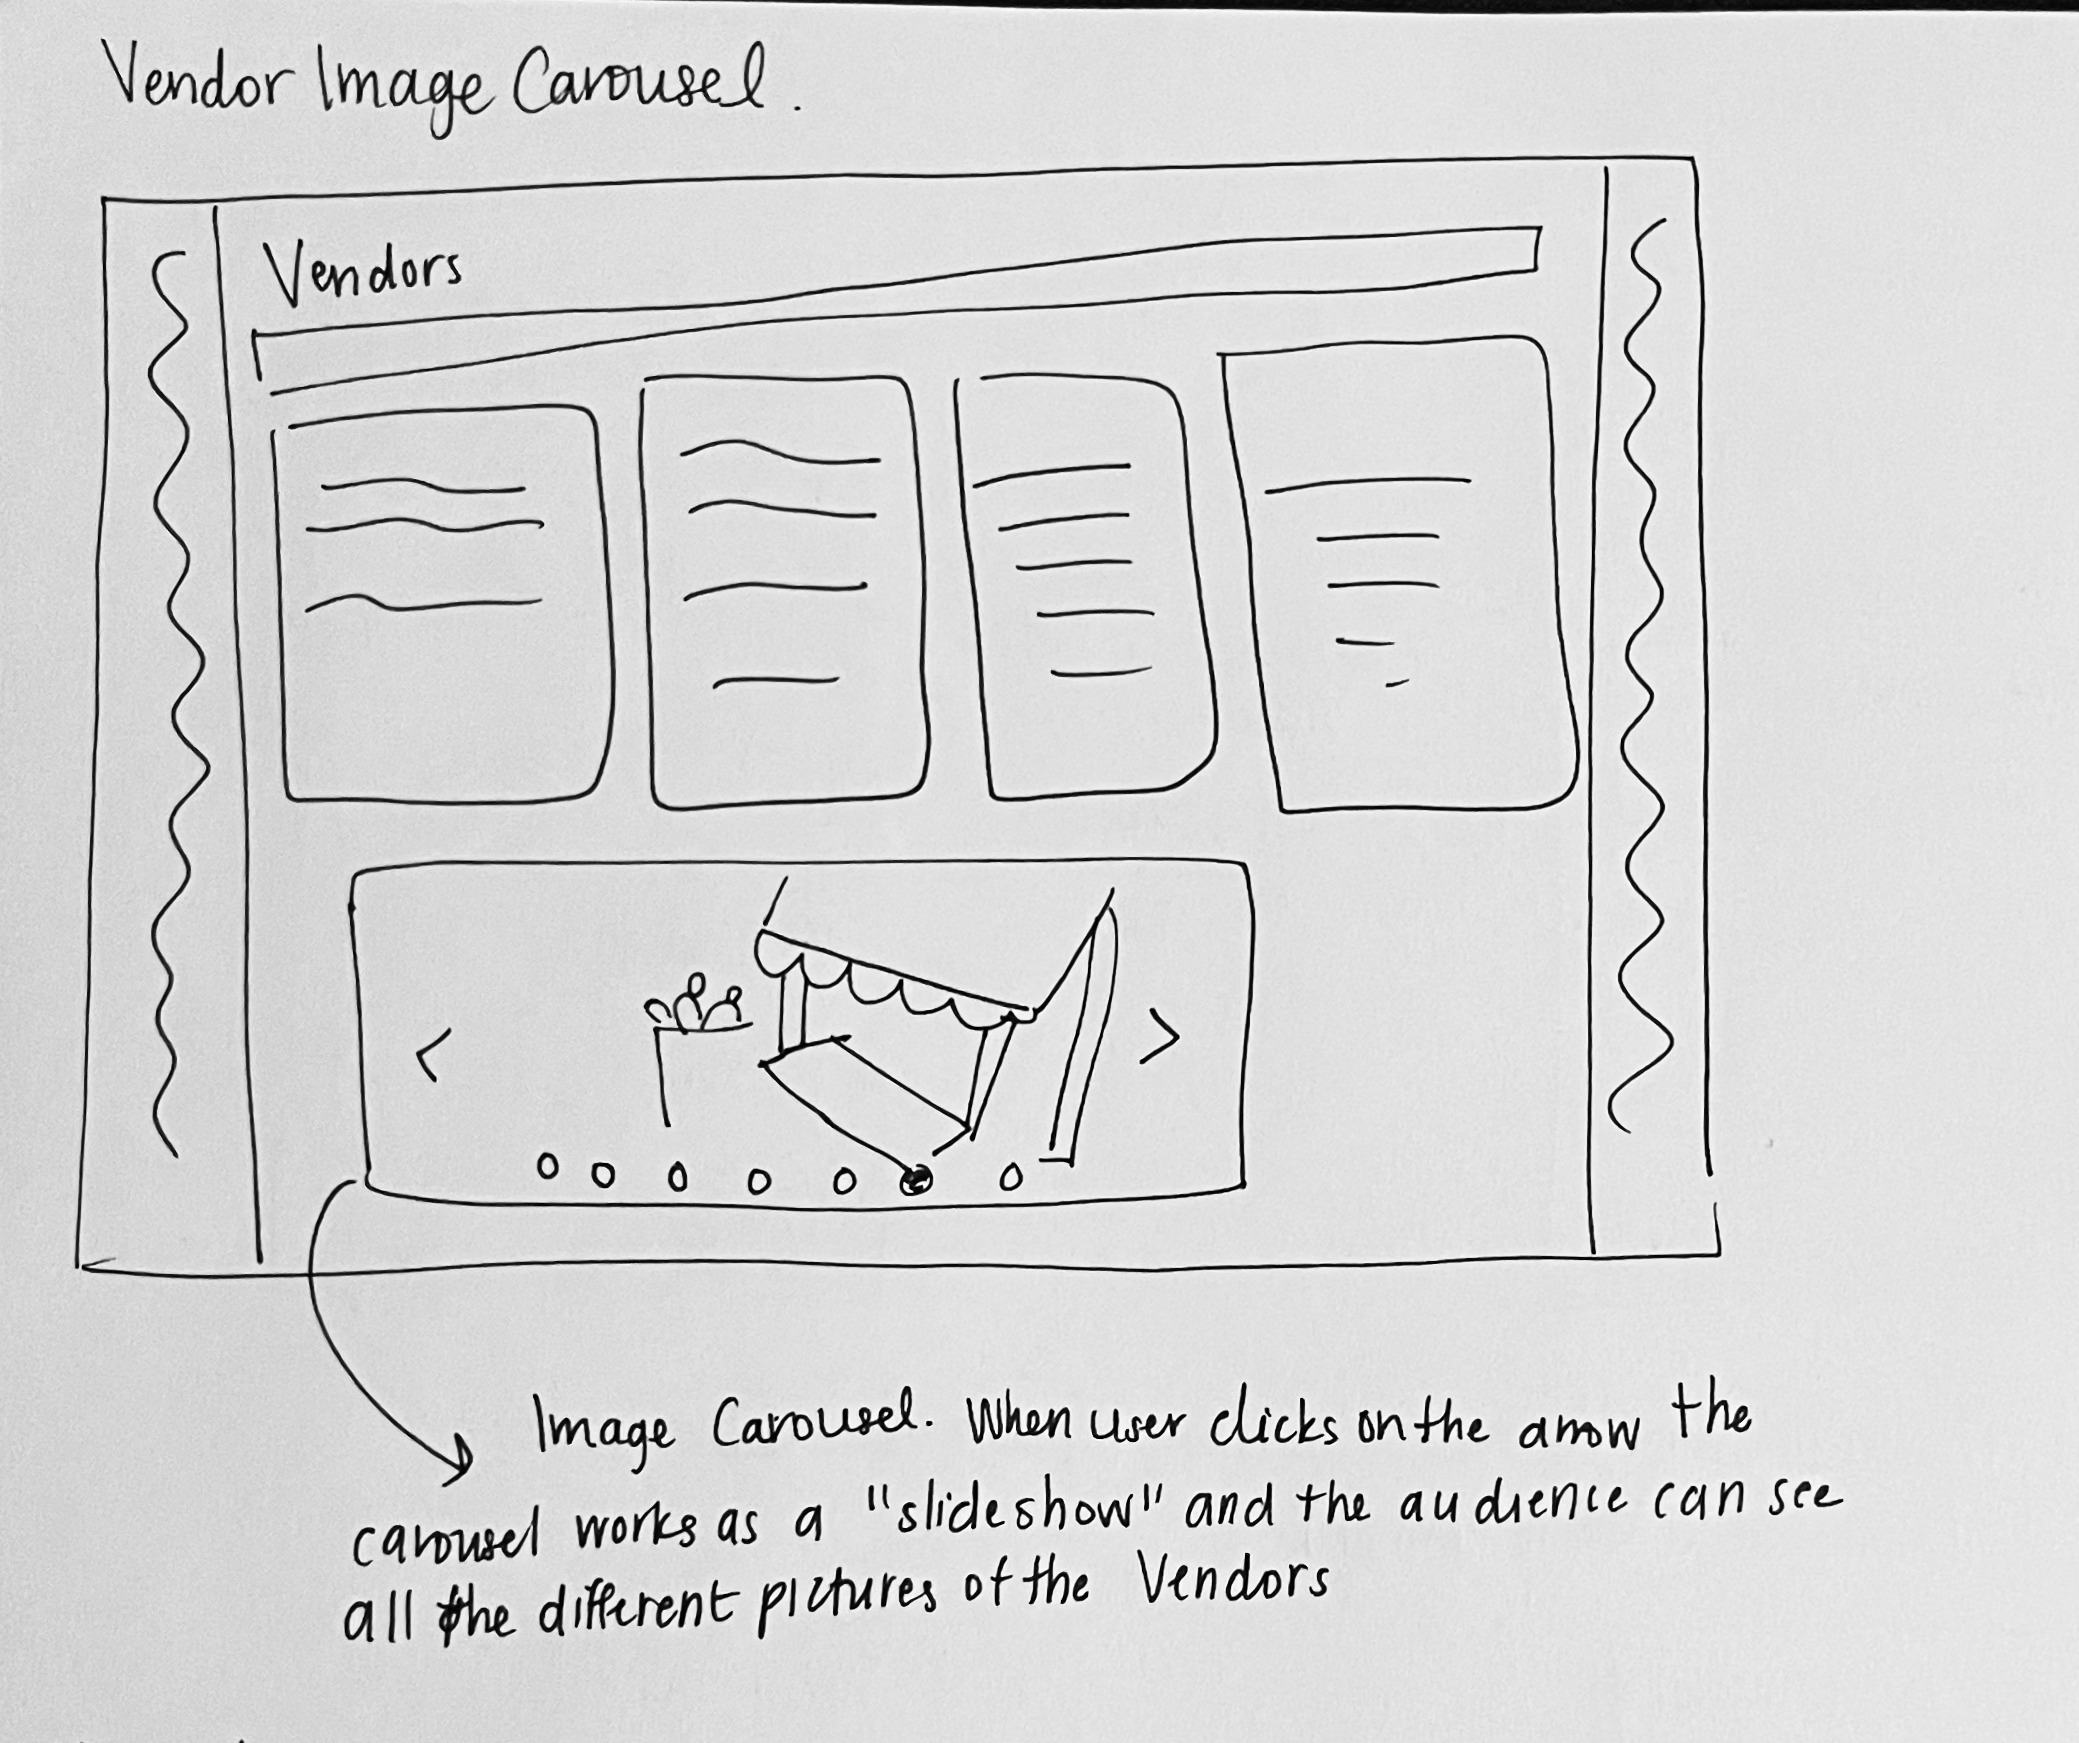 Vendor Image Carousel.
Vendors
< >
Image Carousel. When user clicks on the arrow the
carousel works as a "slideshow" and the audience can see
all the different pictures of the Vendors